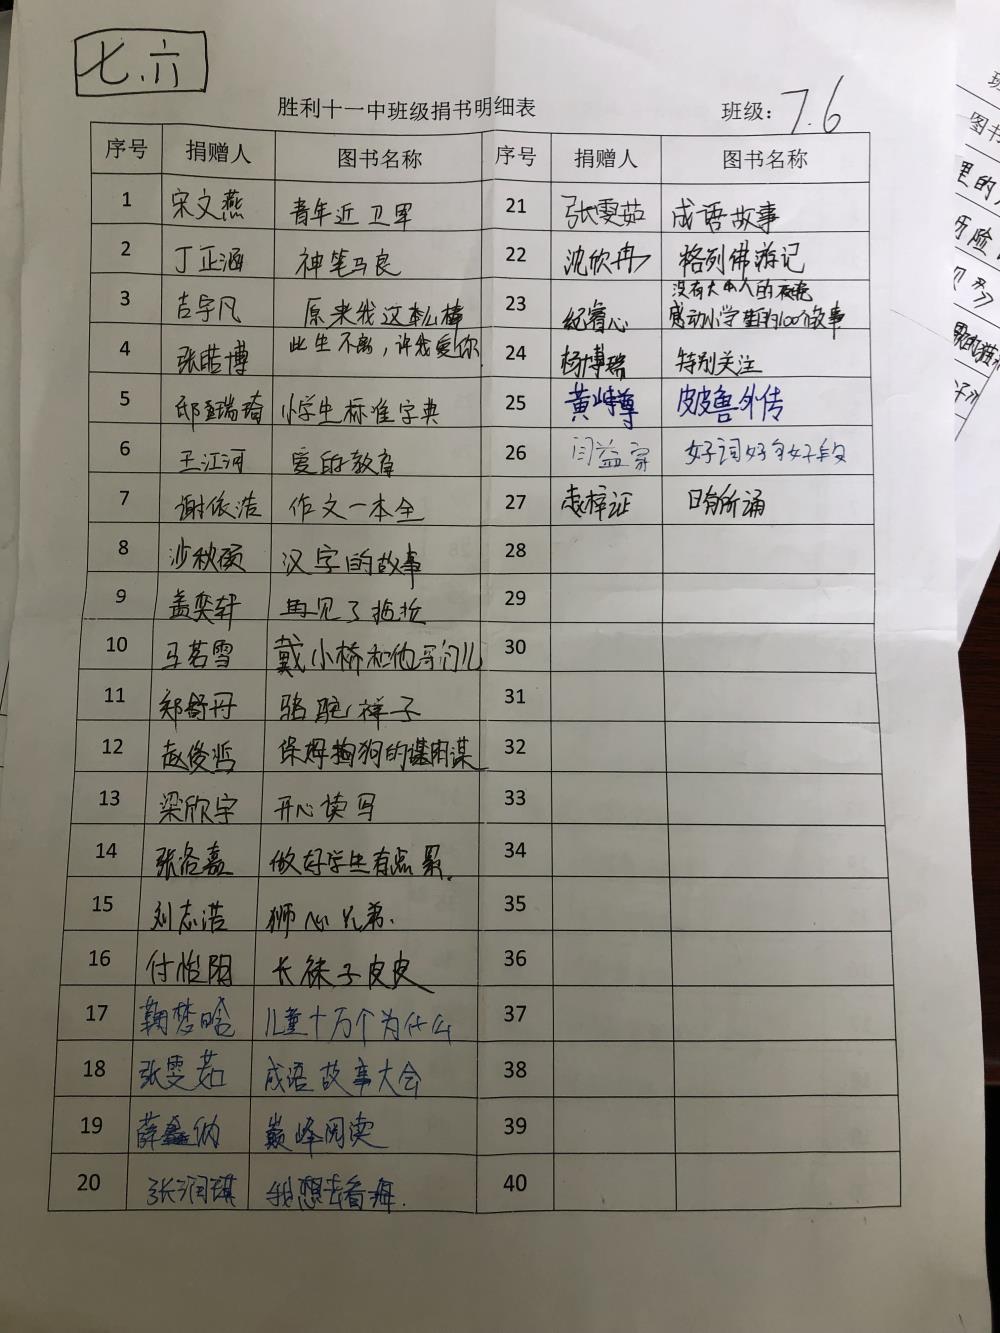 七.六
胜利十一中班级捐书明细表 班级：7.6
序号 捐赠人 图书名称 序号 捐赠人 图书名称
1 宋文燕 青年近卫军 21 张雯茹 成语故事
2 丁正涵 神笔马良 22 沈欣冉 格列佛游记
3 吉宇凡 原来我这么棒 23 纪睿心 没有大人的夜晚 感动小学生的100个故事
4 张皓博 此生不离，许我爱你 24 杨博瑞 特别关注
5 邱瑞琦 小学生标准字典 25 黄 皮皮鲁外传
6 王江河 爱的教育 26 闫益 好词好句好段
7 谢依浩 作文一本全 27 袁梓证 日有所诵
8 沙秋硕 汉字的故事 28
9 盖奕轩 再见了 29
10 马若雪 戴小桥和他哥们儿 30
11 郑舒丹 骆驼祥子 31
12 赵俊哲 保姆狗狗的阴谋 32
13 梁欣宇 开心读写 33
14 张洛嘉 做好学生有点累. 34
15 刘志浩 狮心兄弟. 35
16 付怡阳 长袜子皮皮 36
17 鞠梦晗 儿童十万个为什么 37
18 张雯茹 成语故事大会 38
19 薛鑫 巅峰阅读 39
20 张润琪 我想去看海. 40
班
图书
里的
历险